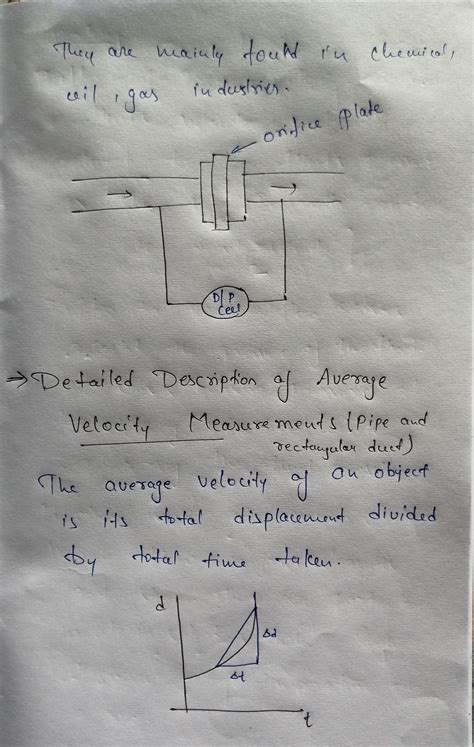 They are mainly found in chemical,
oil, gas industries.
orifice plate
D/P
Cell
→ Detailed Description of Average
Velocity Measurements (Pipe and
rectangular duct)
The average velocity of an object
is its total displacement divided
by total time taken.
d
Δd
Δt
t